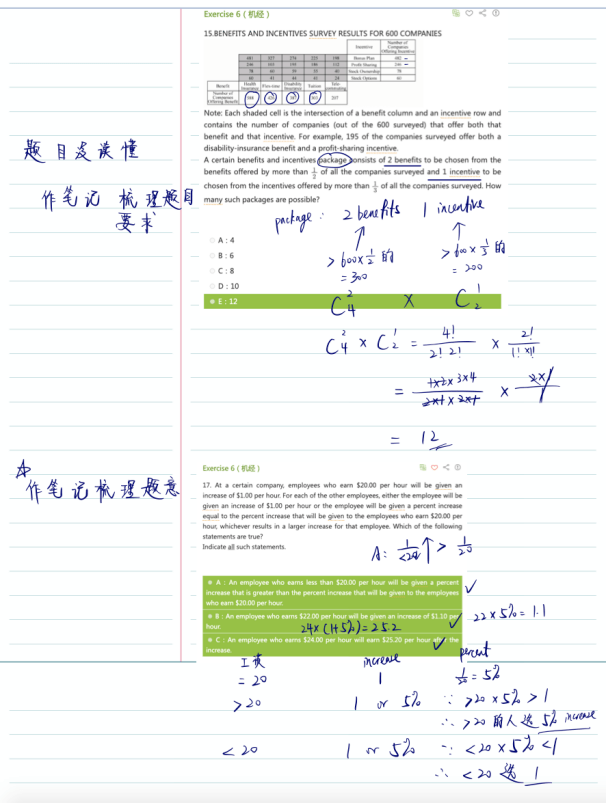 Exercise 6 ( 机经 )
15.BENEFITS AND INCENTIVES SURVEY RESULTS FOR 600 COMPANIES
Incentive
Number of
Companies
Offering Incentive
Bonus Plan
Profit Sharing
Stock Ownership
Stock Options
Benefit
Health Insurance
Disability Insurance
Tuition
Number of
Companies
Offering Benefit
Note: Each shaded cell is the intersection of a benefit column and an incentive row and
contains the number of companies (out of the 600 surveyed) that offer both that
benefit and that incentive. For example, 195 of the companies surveyed offer both a
disability-insurance benefit and a profit-sharing incentive.
A certain benefits and incentives package consists of 2 benefits to be chosen from the
benefits offered by more than 1/2 of all the companies surveyed and 1 incentive to be
chosen from the incentives offered by more than 1/3 of all the companies surveyed. How
many such packages are possible?
题目没读懂
作笔记 梳理题目
要求
package : 2 benefits 1 incentive
A : 4
B : 6
C : 8
D : 10
E : 12
> 600 × 1/2 的
= 300
> 600 × 1/3 的
= 200
C₄² × C₂¹
C₄² × C₂¹ = 4!/(2! 2!) × 2!/(1! × 1!)
= (1×2×3×4)/(2×1×2×1) × (2×1)/1
= 12
Exercise 6 ( 机经 )
作笔记梳理题意
17. At a certain company, employees who earn $20.00 per hour will be given an
increase of $1.00 per hour. For each of the other employees, either the employee will be
given an increase of $1.00 per hour or the employee will be given a percent increase
equal to the percent increase that will be given to the employees who earn $20.00 per
hour, whichever results in a larger increase for that employee. Which of the following
statements are true?
Indicate all such statements.
A: 1/<20 ↑ > 1/20
A : An employee who earns less than $20.00 per hour will be given a percent
increase that is greater than the percent increase that will be given to the employees
who earn $20.00 per hour.
B : An employee who earns $22.00 per hour will be given an increase of $1.10 per
hour.
22 × 5% = 1.1
24× (1+5%) = 25.2
C : An employee who earns $24.00 per hour will earn $25.20 per hour after the
increase.
工资 increase percent
= 20 1 1/20 = 5%
> 20 1 or 5% ∵ >20 × 5% > 1
∴ >20 的人选 5% increase
< 20 1 or 5% ∵ <20 × 5% < 1
∴ <20 选 1